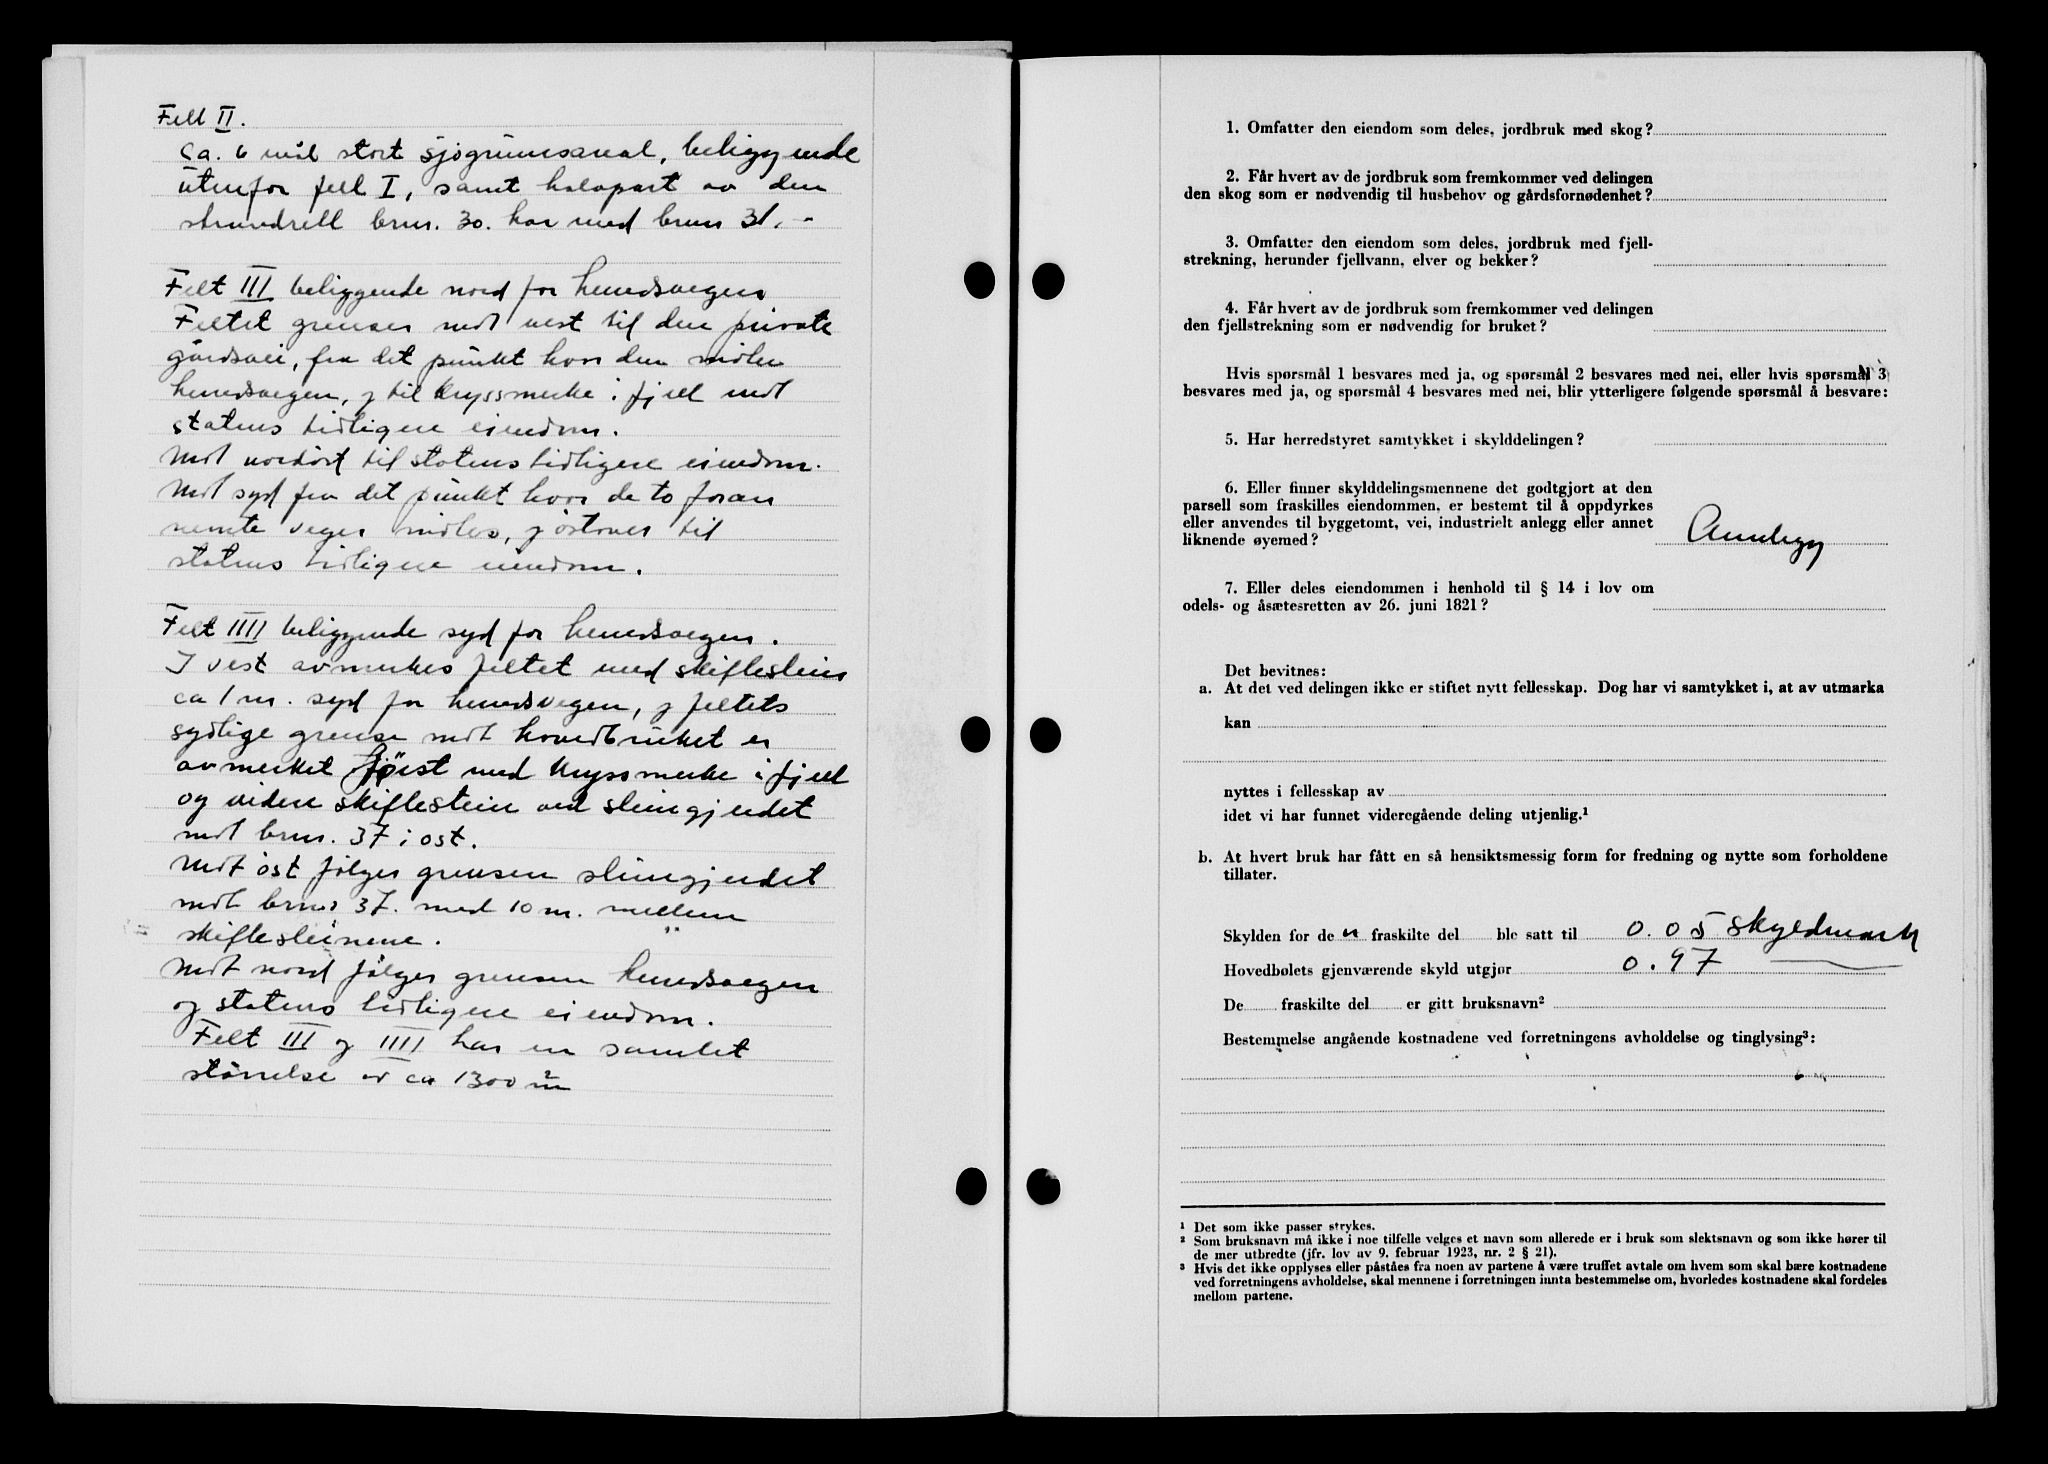 Felt II.
Ca. 6 mål stort sjøgrunnsareal, beliggende
utenfor felt I, samt halvpart av den
strandrett brnr. 30. har med brnr 31. -
Felt III beliggende nord for herredsvegen
Feltet grenser mot vest til den private
gårdsvei, fra det punkt hvor den møter
herredsvegen, og til kryssmerke i fjell mot
statens tidligere eiendom.
Mot nordøst til statens tidligere eiendom.
Mot syd fra det punkt hvor de to foran
nemte veger møtes, og østover til
statens tidligere eiendom.
Felt IIII beliggende syd for herredsvegen.
I vest avmerkes feltet med skiftestein
ca 1 m. syd for herredsvegen, og feltets
sydlige grense mot hovedbruket er
avmerket først med kryssmerke i fjell
og videre skiftestein ved steingjerdet
mot brnr. 37 i øst.
Mot øst følger grensen steingjerdet
mot brnr 37. med 10 m. mellem
skiftesteinene.
Mot nord følger grensen herredsvegen
og statens tidligere eiendom.
Felt III og IIII har en samlet
størrelse av ca 1300 m²
1. Omfatter den eiendom som deles, jordbruk med skog?
2. Får hvert av de jordbruk som fremkommer ved delingen
den skog som er nødvendig til husbehov og gårdsfornødenhet?
3. Omfatter den eiendom som deles, jordbruk med fjell-
strekning, herunder fjellvann, elver og bekker?
4. Får hvert av de jordbruk som fremkommer ved delingen
den fjellstrekning som er nødvendig for bruket?
Hvis spørsmål 1 besvares med ja, og spørsmål 2 besvares med nei, eller hvis spørsmål 3
besvares med ja, og spørsmål 4 besvares med nei, blir ytterligere følgende spørsmål å besvare:
5. Har herredstyret samtykket i skylddelingen?
6. Eller finner skylddelingsmennene det godtgjort at den
parsell som fraskilles eiendommen, er bestemt til å oppdyrkes
eller anvendes til byggetomt, vei, industrielt anlegg eller annet
liknende øyemed?
7. Eller deles eiendommen i henhold til § 14 i lov om
odels- og åsætesretten av 26. juni 1821?
Det bevitnes:
a. At det ved delingen ikke er stiftet nytt fellesskap. Dog har vi samtykket i, at av utmarka
kan
nyttes i fellesskap av
idet vi har funnet videregående deling utjenlig.¹
b. At hvert bruk har fått en så hensiktsmessig form for fredning og nytte som forholdene
tillater.
Skylden for de n fraskilte del ble satt til 0.05 skyldmark
Hovedbølets gjenværende skyld utgjør 0.97
De fraskilte del er gitt bruksnavn²
Bestemmelse angående kostnadene ved forretningens avholdelse og tinglysing³:
¹ Det som ikke passer strykes.
² Som bruksnavn må ikke i noe tilfelle velges et navn som allerede er i bruk som slektsnavn og som ikke hører til
de mer utbredte (jfr. lov av 9. februar 1923, nr. 2 § 21).
³ Hvis det ikke opplyses eller påståes fra noen av partene å være truffet avtale om hvem som skal bære kostnadene
ved forretningens avholdelse, skal mennene i forretningen innta bestemmelse om, hvorledes kostnadene skal fordeles
mellom partene.